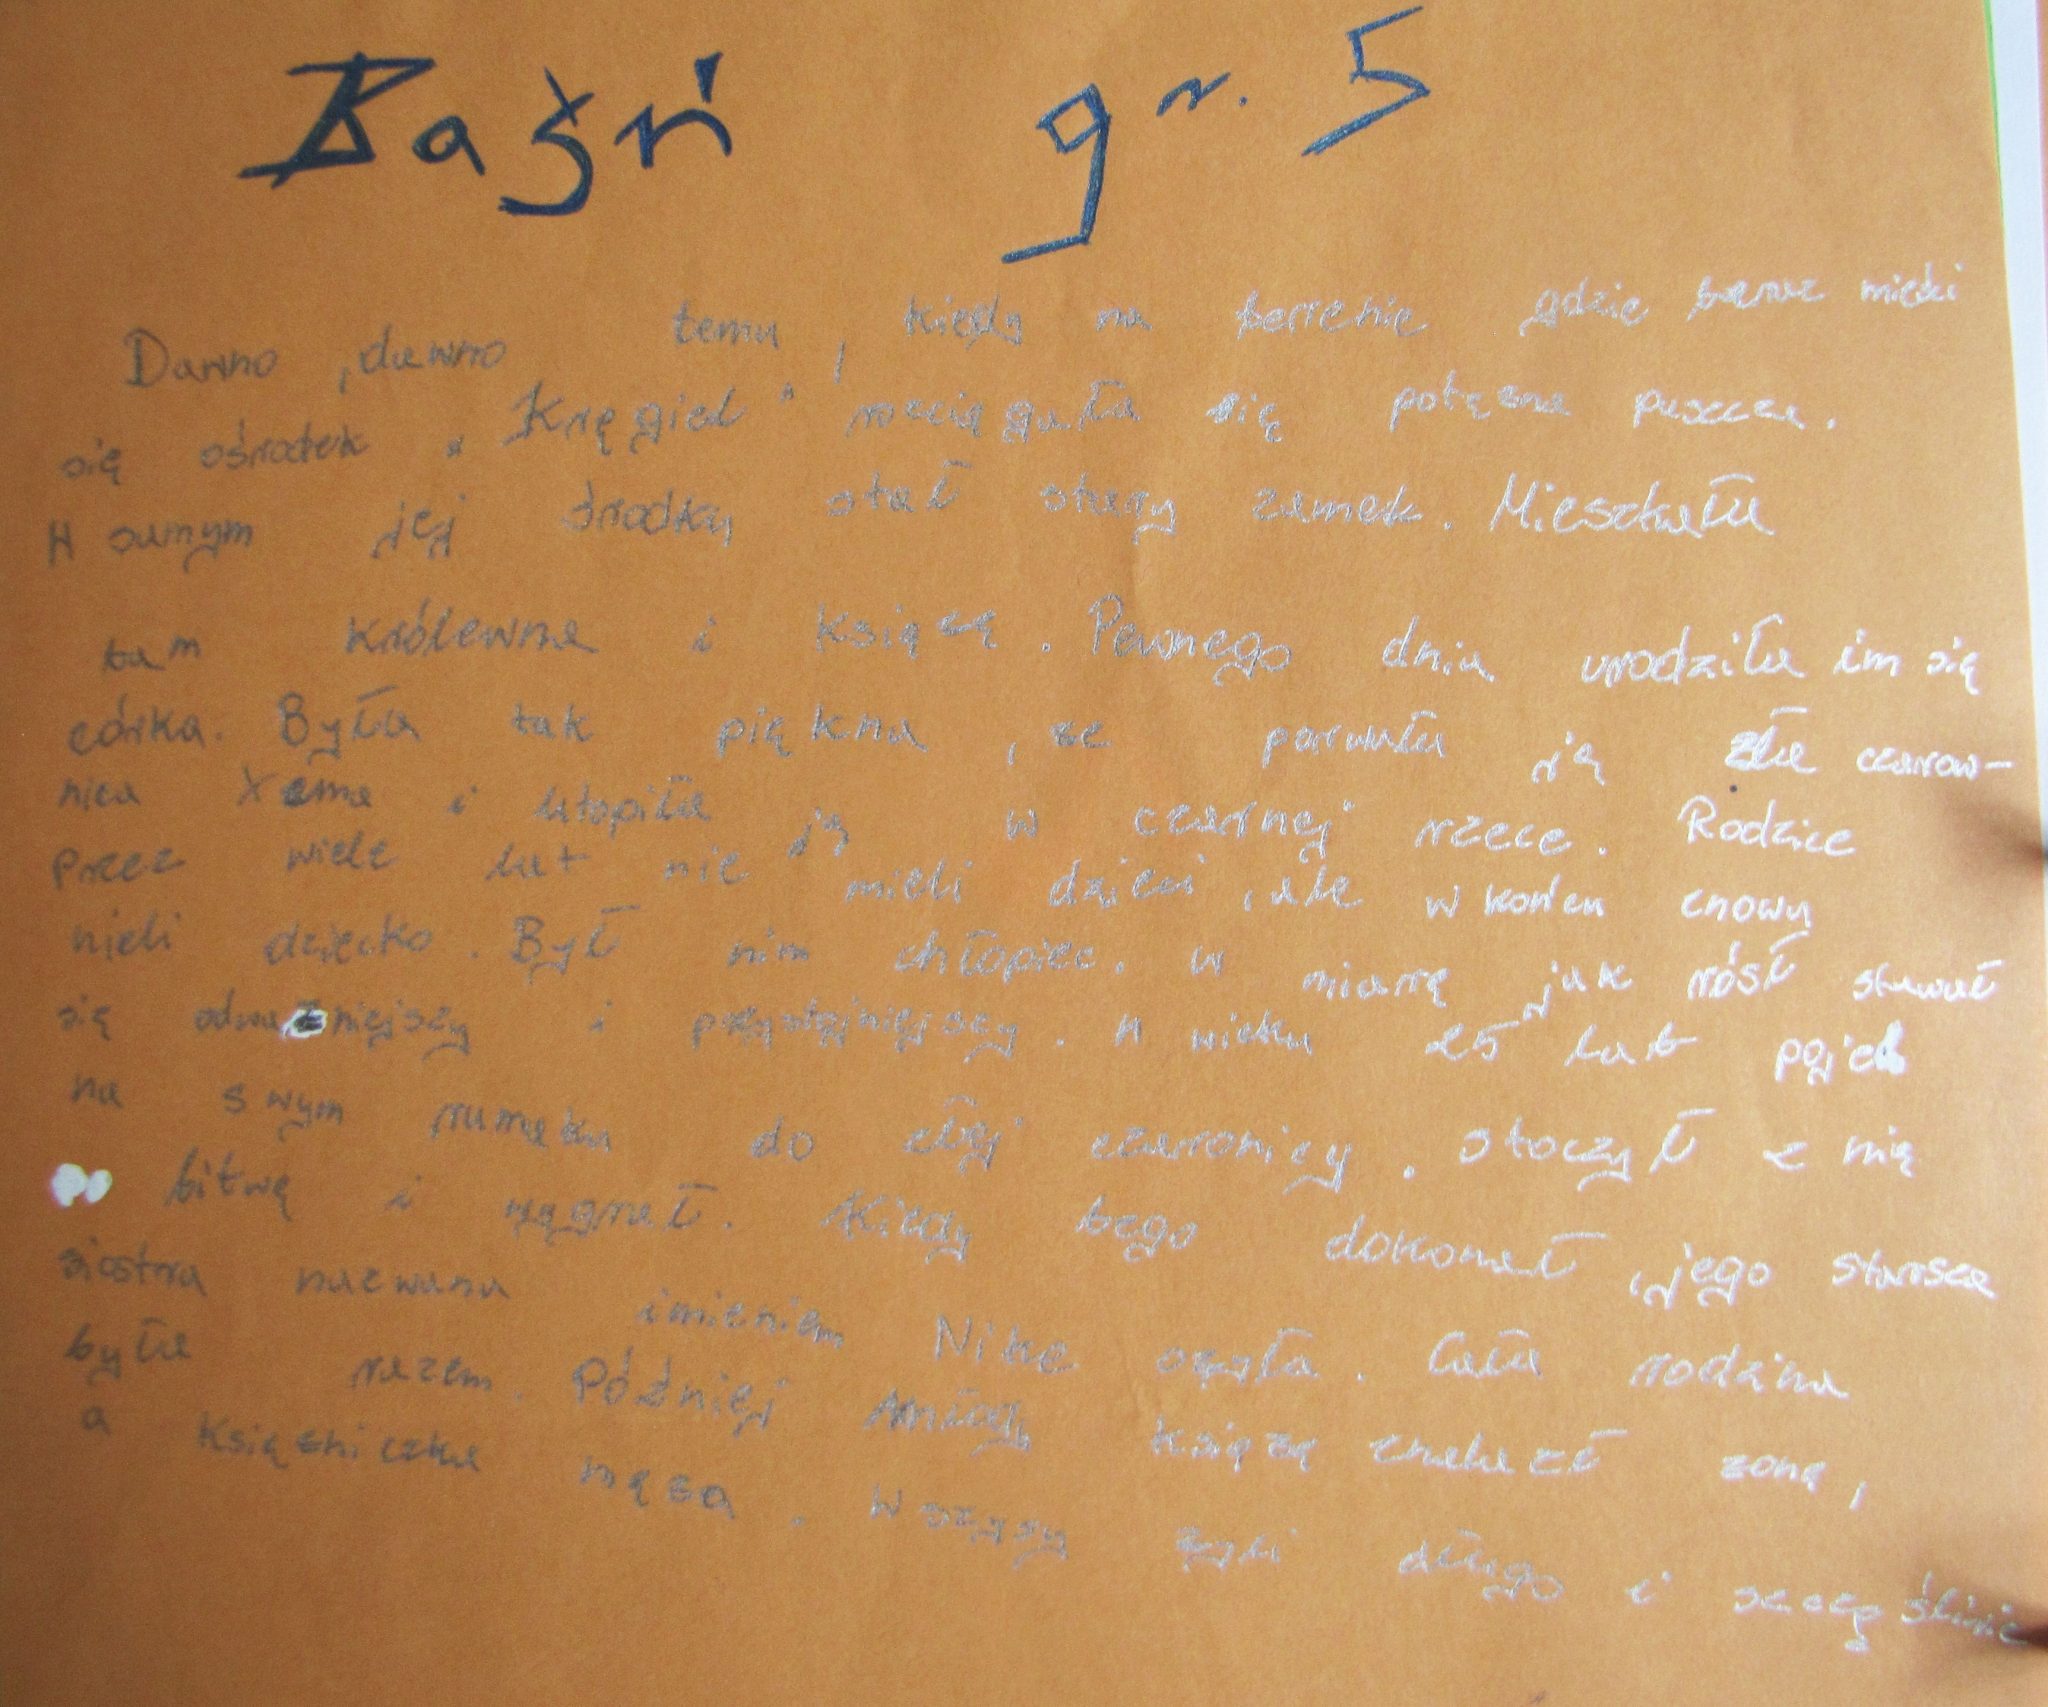 Baśń gr. 5
Dawno, dawno temu, kiedy na terenie gdzie teraz mieści
się ośrodek "Kręgiel" rozciągała się potężna puszcza.
W samym jej środky stał stary zamek. Mieszkała
tam królewna i książę. Pewnego dnia urodziła im się
córka. Była tak piękna, że porwała ją zła czarow-
nica Xena i utopiła ją w czarnej rzece. Rodzice
przez wiele lat nie mieli dzieci, ale w końcu znowu
mieli dziecko. Był nim chłopiec. W miarę jak rósł stawał
się odważniejszy i przystojniejszy. W wieku 25 lat
na swym rumaku do złej czarownicy. Stoczył z nią
bitwę i wygrał. Kiedy tego dokonał, jego starsza
siostra nazwana imieniem Nike ożyła. Cała rodzina
była razem. Później młody książę znalazł żonę,
a księżniczka męża. Wszyscy żyli długo i szczęśliwie